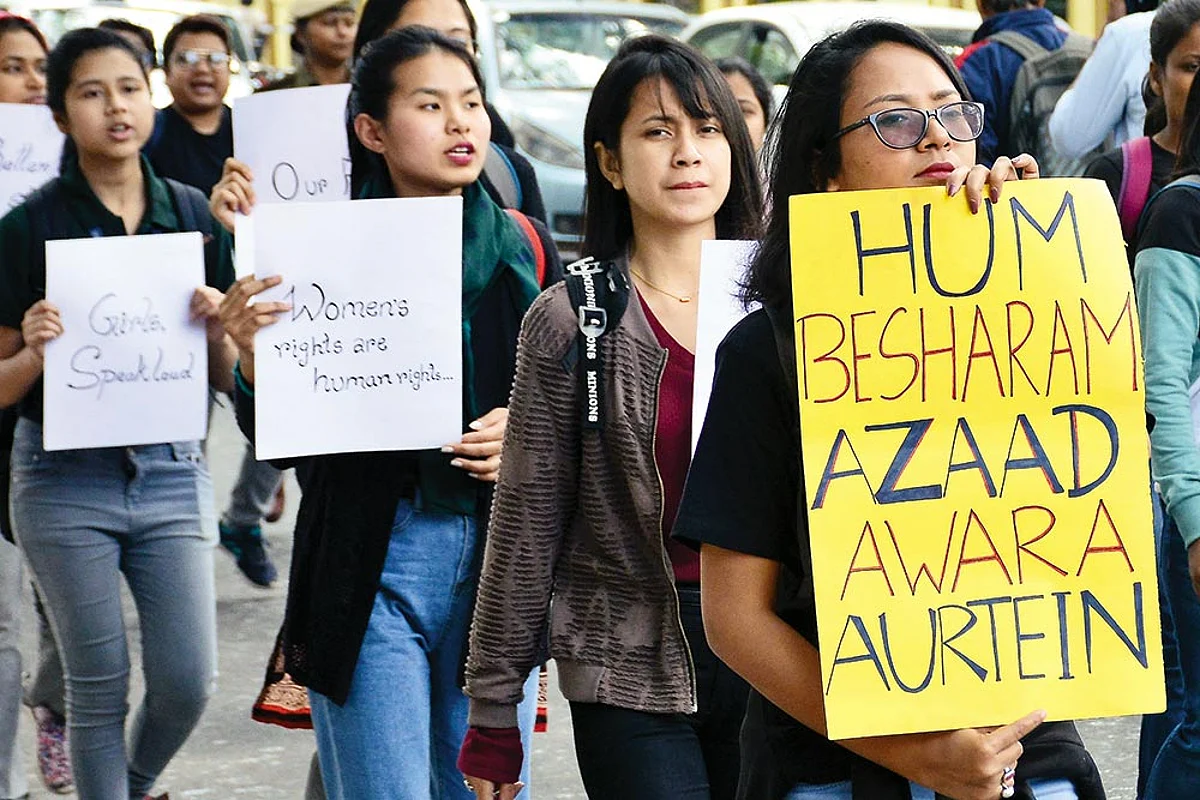 Our
Girls,
Speak loud
Women's
rights are
human rights...
MINIONS
HUM
BESHARAM
AZAAD
AWARA
AURTEIN